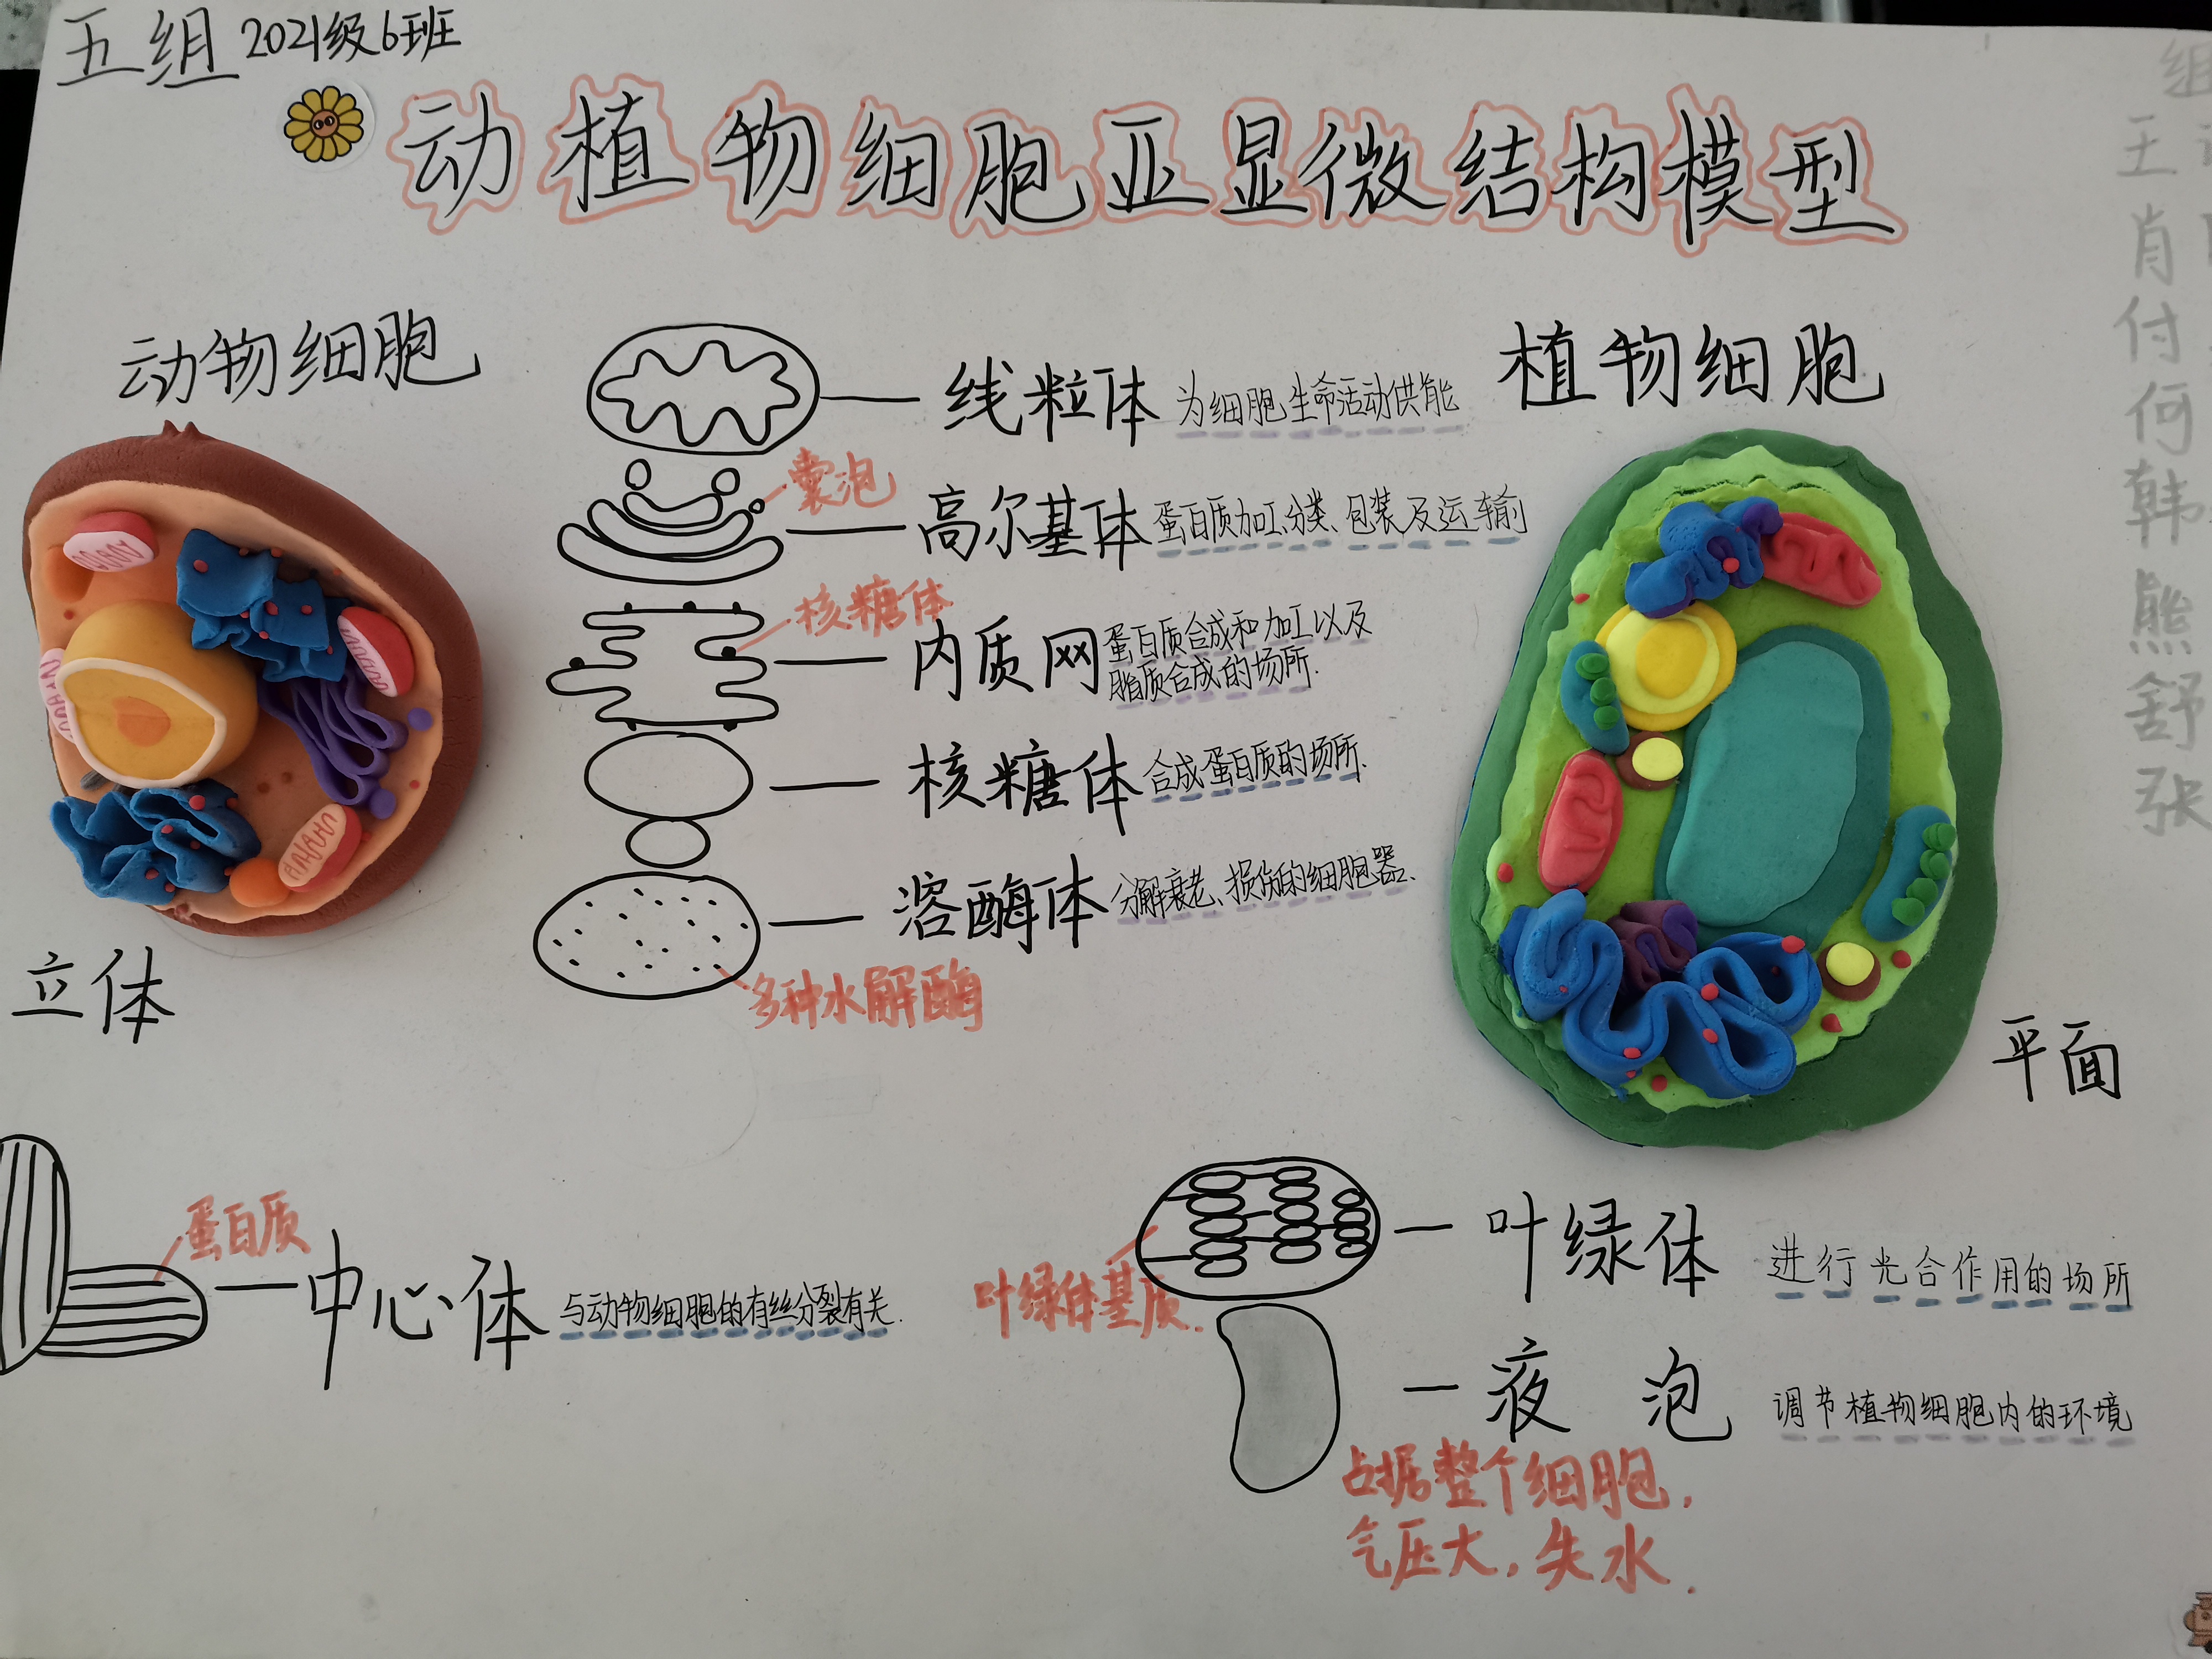 五组 2021级6班
动植物细胞亚显微结构模型
动物细胞
植物细胞
线粒体 为细胞生命活动供能
囊泡
高尔基体 蛋白质加工、分类、包装及运输
核糖体
内质网 蛋白质合成和加工以及
脂质合成的场所.
核糖体 合成蛋白质的场所.
溶酶体 分解衰老、损伤的细胞器.
多种水解酶
立体
平面
蛋白质
中心体 与动物细胞的有丝分裂有关.
叶绿体 进行光合作用的场所
叶绿体基质.
液泡 调节植物细胞内的环境
占据整个细胞.
气压大,失水.
组
王
肖
付
何
韩
熊
舒
张